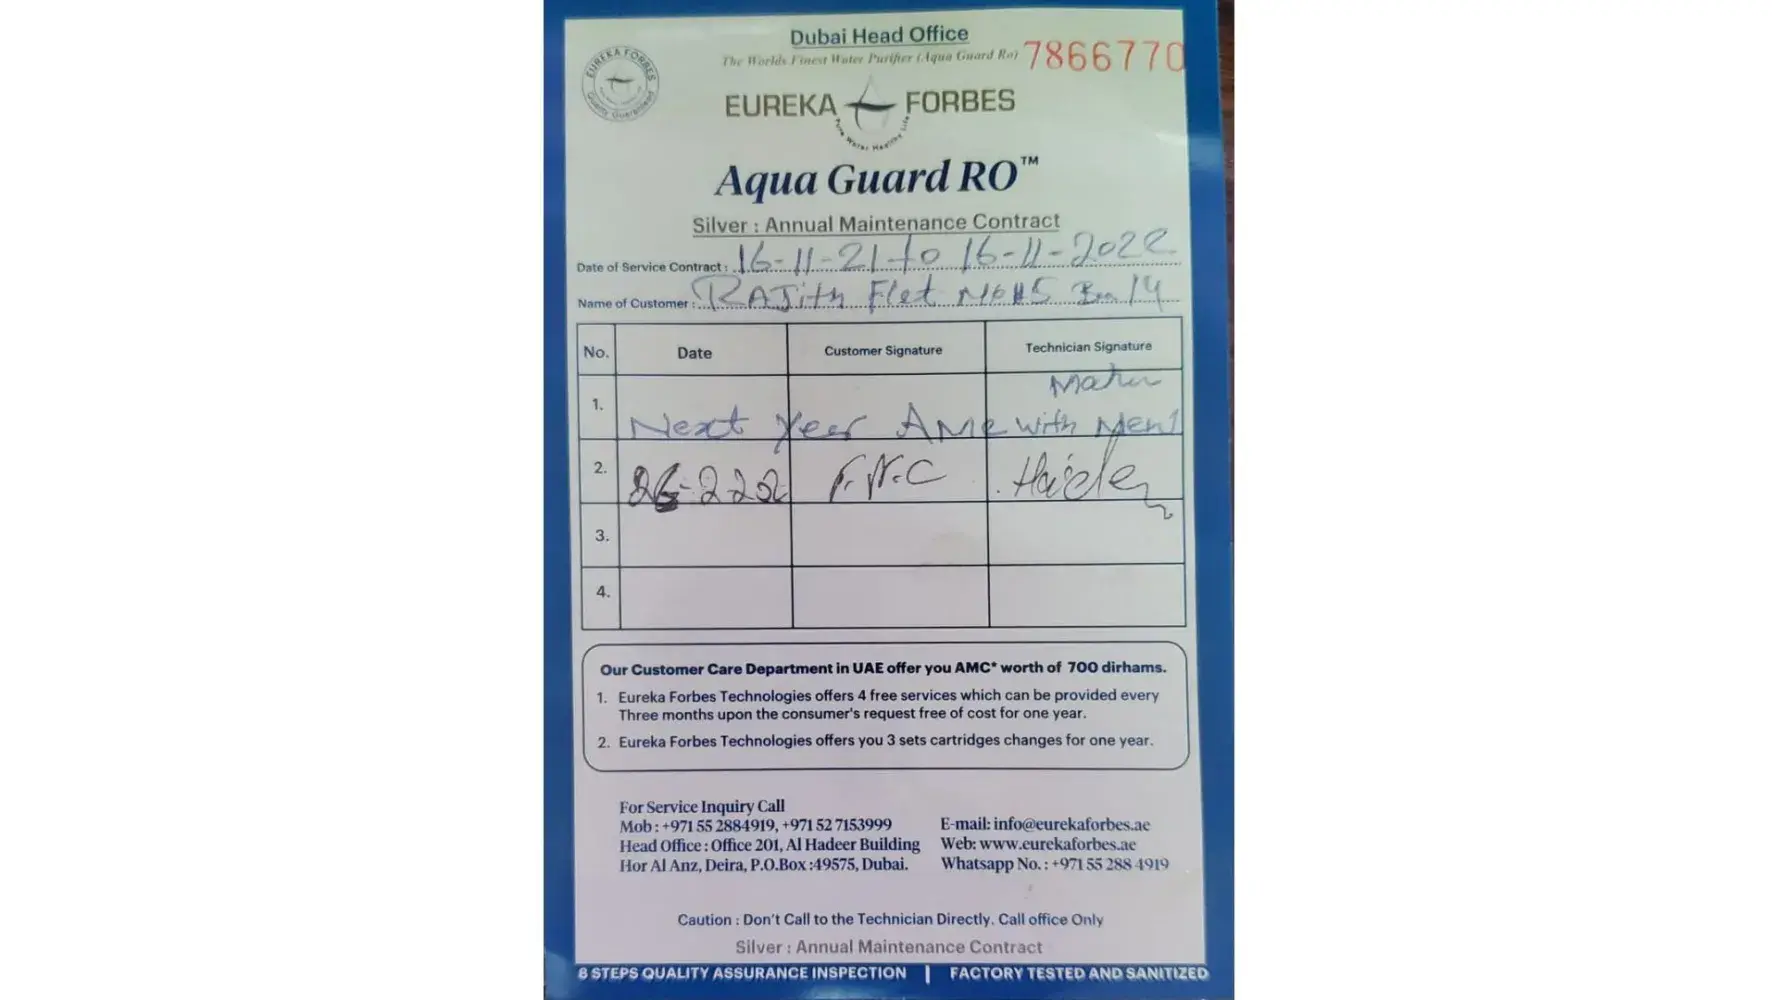 Dubai Head Office
The Worlds Finest Water Purifier (Aqua Guard Ro) 7866770
EUREKA FORBES
Quality Guaranteed
EUREKA FORBES
Pure Water Healthy Life
Aqua Guard RO™
Silver : Annual Maintenance Contract
Date of Service Contract : 16-11-21 to 16-11-2022
Name of Customer : RAJith Flet 14
No. Date Customer Signature Technician Signature
1.
Next Year AMC with
2. F.N.C Haider
3.
4.
Our Customer Care Department in UAE offer you AMC* worth of 700 dirhams.
1. Eureka Forbes Technologies offers 4 free services which can be provided every
Three months upon the consumer's request free of cost for one year.
2. Eureka Forbes Technologies offers you 3 sets cartridges changes for one year.
For Service Inquiry Call
Mob : +971 55 2884919, +971 52 7153999
Head Office : Office 201, Al Hadeer Building
Hor Al Anz, Deira, P.O.Box :49575, Dubai.
E-mail: info@eurekaforbes.ae
Web: www.eurekaforbes.ae
Whatsapp No. : +971 55 288 4919
Caution : Don't Call to the Technician Directly. Call office Only
Silver : Annual Maintenance Contract
8 STEPS QUALITY ASSURANCE INSPECTION | FACTORY TESTED AND SANITIZED